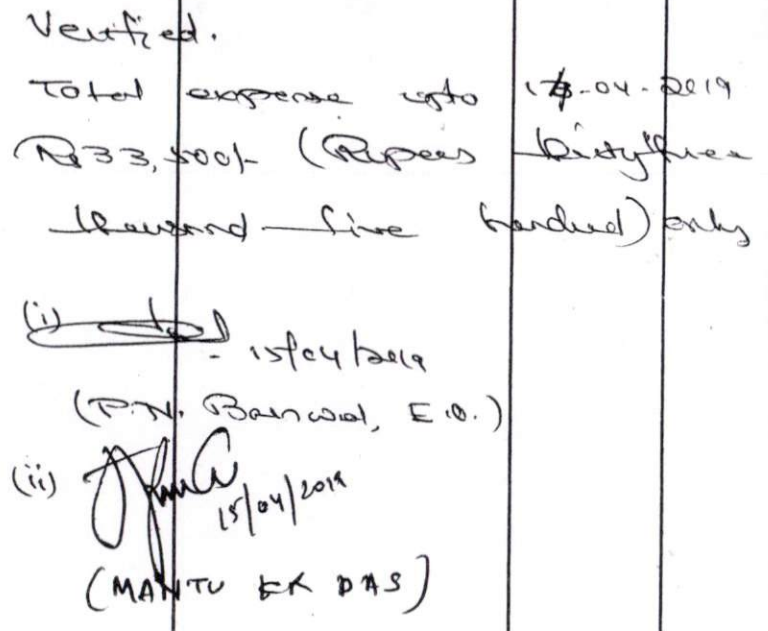 Verified.
Total expense upto 1-04-2019
Rs 33,500/- (Rupees thirty three
thousand five hundred) only
(i)
15/04/2019
(P.N. Barnwal, E.O.)
(ii)
15/04/2019
(MANTU KR DAS)